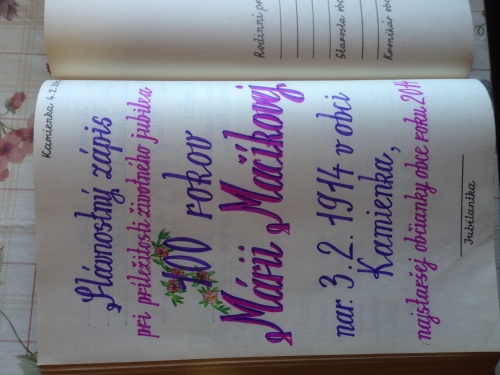 Kamienka 4. 2.
Slávnostný zápis
pri príležitosti životného jubilea
100 rokov
Márii Mačikovej
nar. 3. 2. 1914 v obci
Kamienka,
najstaršej občianky obce roku 2014
Jubilantka
Rodinní
Starosta
Kronikár